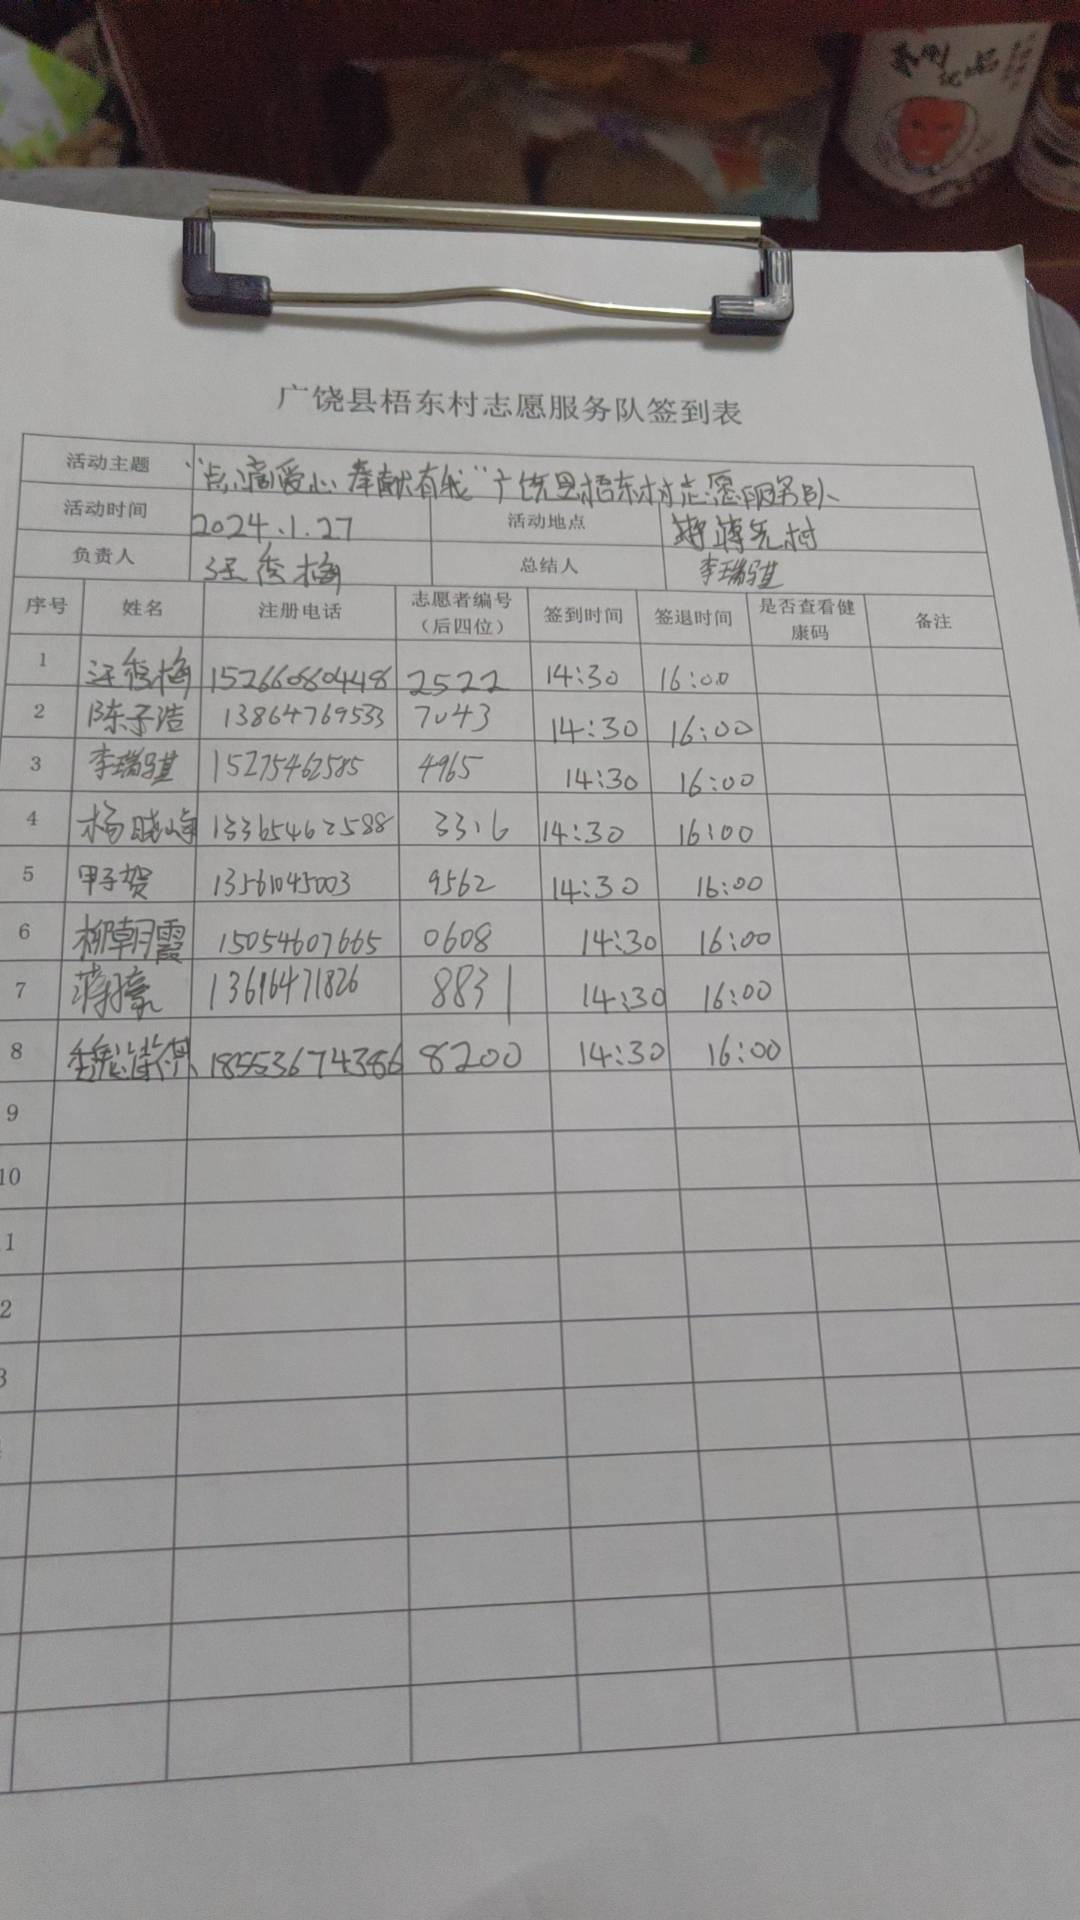 广饶县梧东村志愿服务队签到表
活动主题 “点滴爱心 奉献有我”广饶县梧东村志愿服务队
活动时间 2024.1.27 活动地点
负责人 汪俊梅 总结人 李瑞骐
序号 姓名 注册电话 志愿者编号（后四位） 签到时间 签退时间 是否查看健康码 备注
1 汪俊梅 15266080448 2522 14:30 16:00
2 陈子浩 13864769533 7043 14:30 16:00
3 李瑞骐 15275462585 4965 14:30 16:00
4 杨晓峰 13365462588 3316 14:30 16:00
5 甲子贺 13561045003 9562 14:30 16:00
6 柳朝霞 15054607665 0608 14:30 16:00
7 蒋豪 13616471826 8831 14:30 16:00
8 18553674386 8200 14:30 16:00
9
10